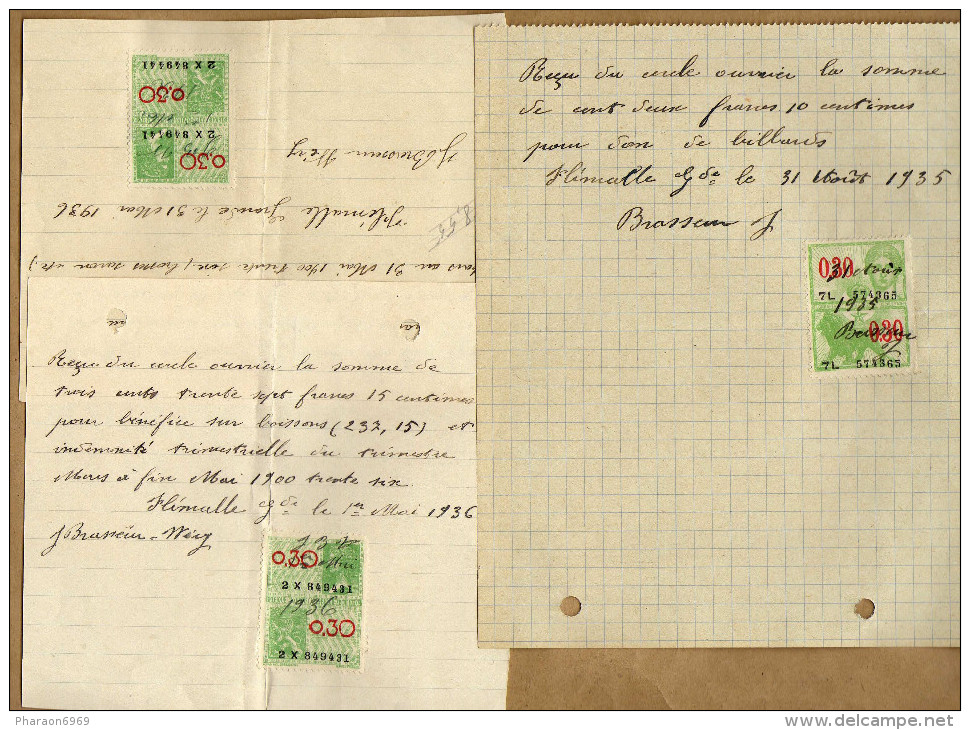 Reçu du cercle ouvrier la somme
de cent deux francs 10 centimes
pour don de billards
Flémalle Gde le 31 Août 1935
Brasseur J
0.30
31 Août
7L 574365
1935
0.30
Brasseur
7L 574365
2 X 849441
0.30
2 X 849441
0.30
J Brasseur Wéry
Flémalle Grande le 31 Mai 1936
8,535
au 31 Mai 1900 trente six
Reçu du cercle ouvrier la somme de
trois cents trente sept francs 15 centimes
pour bénéfice sur boissons (237,15) et
indemnité trimestrielle du trimestre
Mars à fin Mai 1900 trente six
Flémalle Gde le 1er Mai 1936
J Brasseur-Wéry
0.30
2 X 849431
1936
0.30
2 X 849431
Pharaon6969
delcampe.net